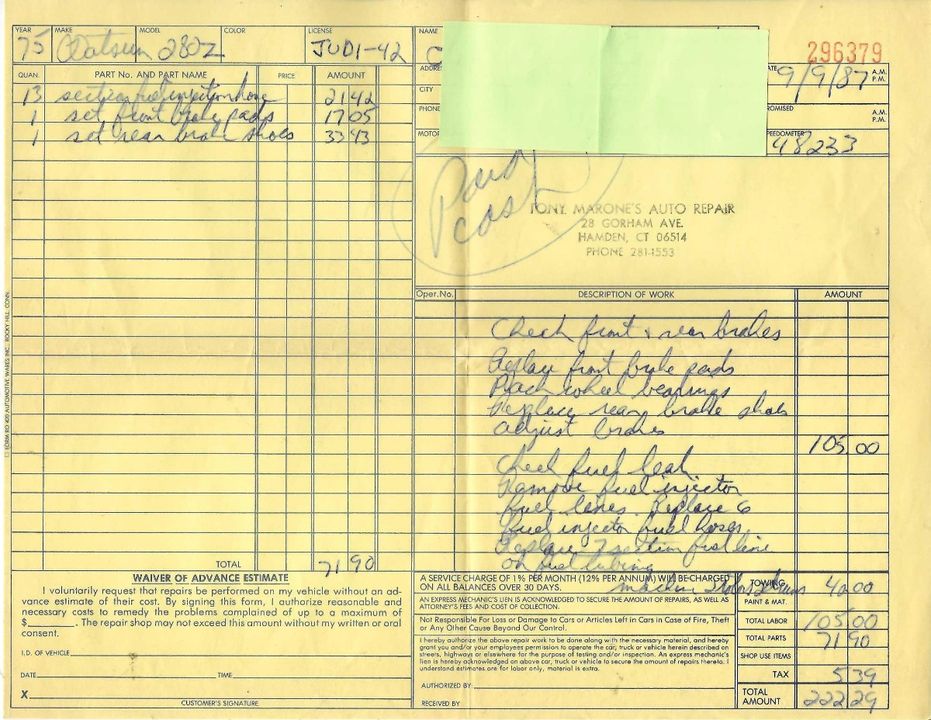 YEAR MAKE MODEL COLOR LICENSE NAME
75 Datsun 280Z JUD1-42
296379
ADDRE
9/9/87 A.M. P.M.
CITY
PHONE OMISED A.M. P.M.
MOTOR PEEDOMETER
48233
QUAN. PART No. AND PART NAME PRICE AMOUNT
13 section fuel injection hose 21 42
1 set front brake pads 17 05
1 set rear brake shoes 33 43
Paid cash
TONY MARONE'S AUTO REPAIR
28 GORHAM AVE.
HAMDEN, CT 06514
PHONE 281-1553
Oper. No. DESCRIPTION OF WORK AMOUNT
Check front + rear brakes
Replace front brake pads
Pack wheel bearings
Replace rear brake shoes
adjust brakes
105.00
Check fuel leak
Remove fuel injector
fuel lines. Replace 6
fuel injector fuel hoses.
Replace 7 section fuel line
on fuel tubing
TOTAL 71 90
FORM RO 409 AUTOMOTIVE WARES INC., ROCKY HILL, CONN.
WAIVER OF ADVANCE ESTIMATE
I voluntarily request that repairs be performed on my vehicle without an ad-
vance estimate of their cost. By signing this form, I authorize reasonable and
necessary costs to remedy the problems complained of up to a maximum of
$________. The repair shop may not exceed this amount without my written or oral
consent.
I.D. OF VEHICLE
DATE TIME
X
CUSTOMER'S SIGNATURE
A SERVICE CHARGE OF 1% PER MONTH (12% PER ANNUM) WILL BE CHARGED
ON ALL BALANCES OVER 30 DAYS.
machine
AN EXPRESS MECHANIC'S LIEN IS ACKNOWLEDGED TO SECURE THE AMOUNT OF REPAIRS, AS WELL AS
ATTORNEY'S FEES AND COST OF COLLECTION.
Not Responsible For Loss or Damage to Cars or Articles Left in Cars in Case of Fire, Theft
or Any Other Cause Beyond Our Control.
I hereby authorize the above repair work to be done along with the necessary material, and hereby
grant you and/or your employees permission to operate the car, truck or vehicle herein described on
streets, highways or elsewhere for the purpose of testing and/or inspection. An express mechanic's
lien is hereby acknowledged on above car, truck or vehicle to secure the amount of repairs thereto. I
understand estimates are for labor only, material is extra.
AUTHORIZED BY
RECEIVED BY
TOWING 40.00
PAINT & MAT.
TOTAL LABOR 105.00
TOTAL PARTS 71 90
SHOP USE ITEMS
TAX 5 39
TOTAL AMOUNT 222.29